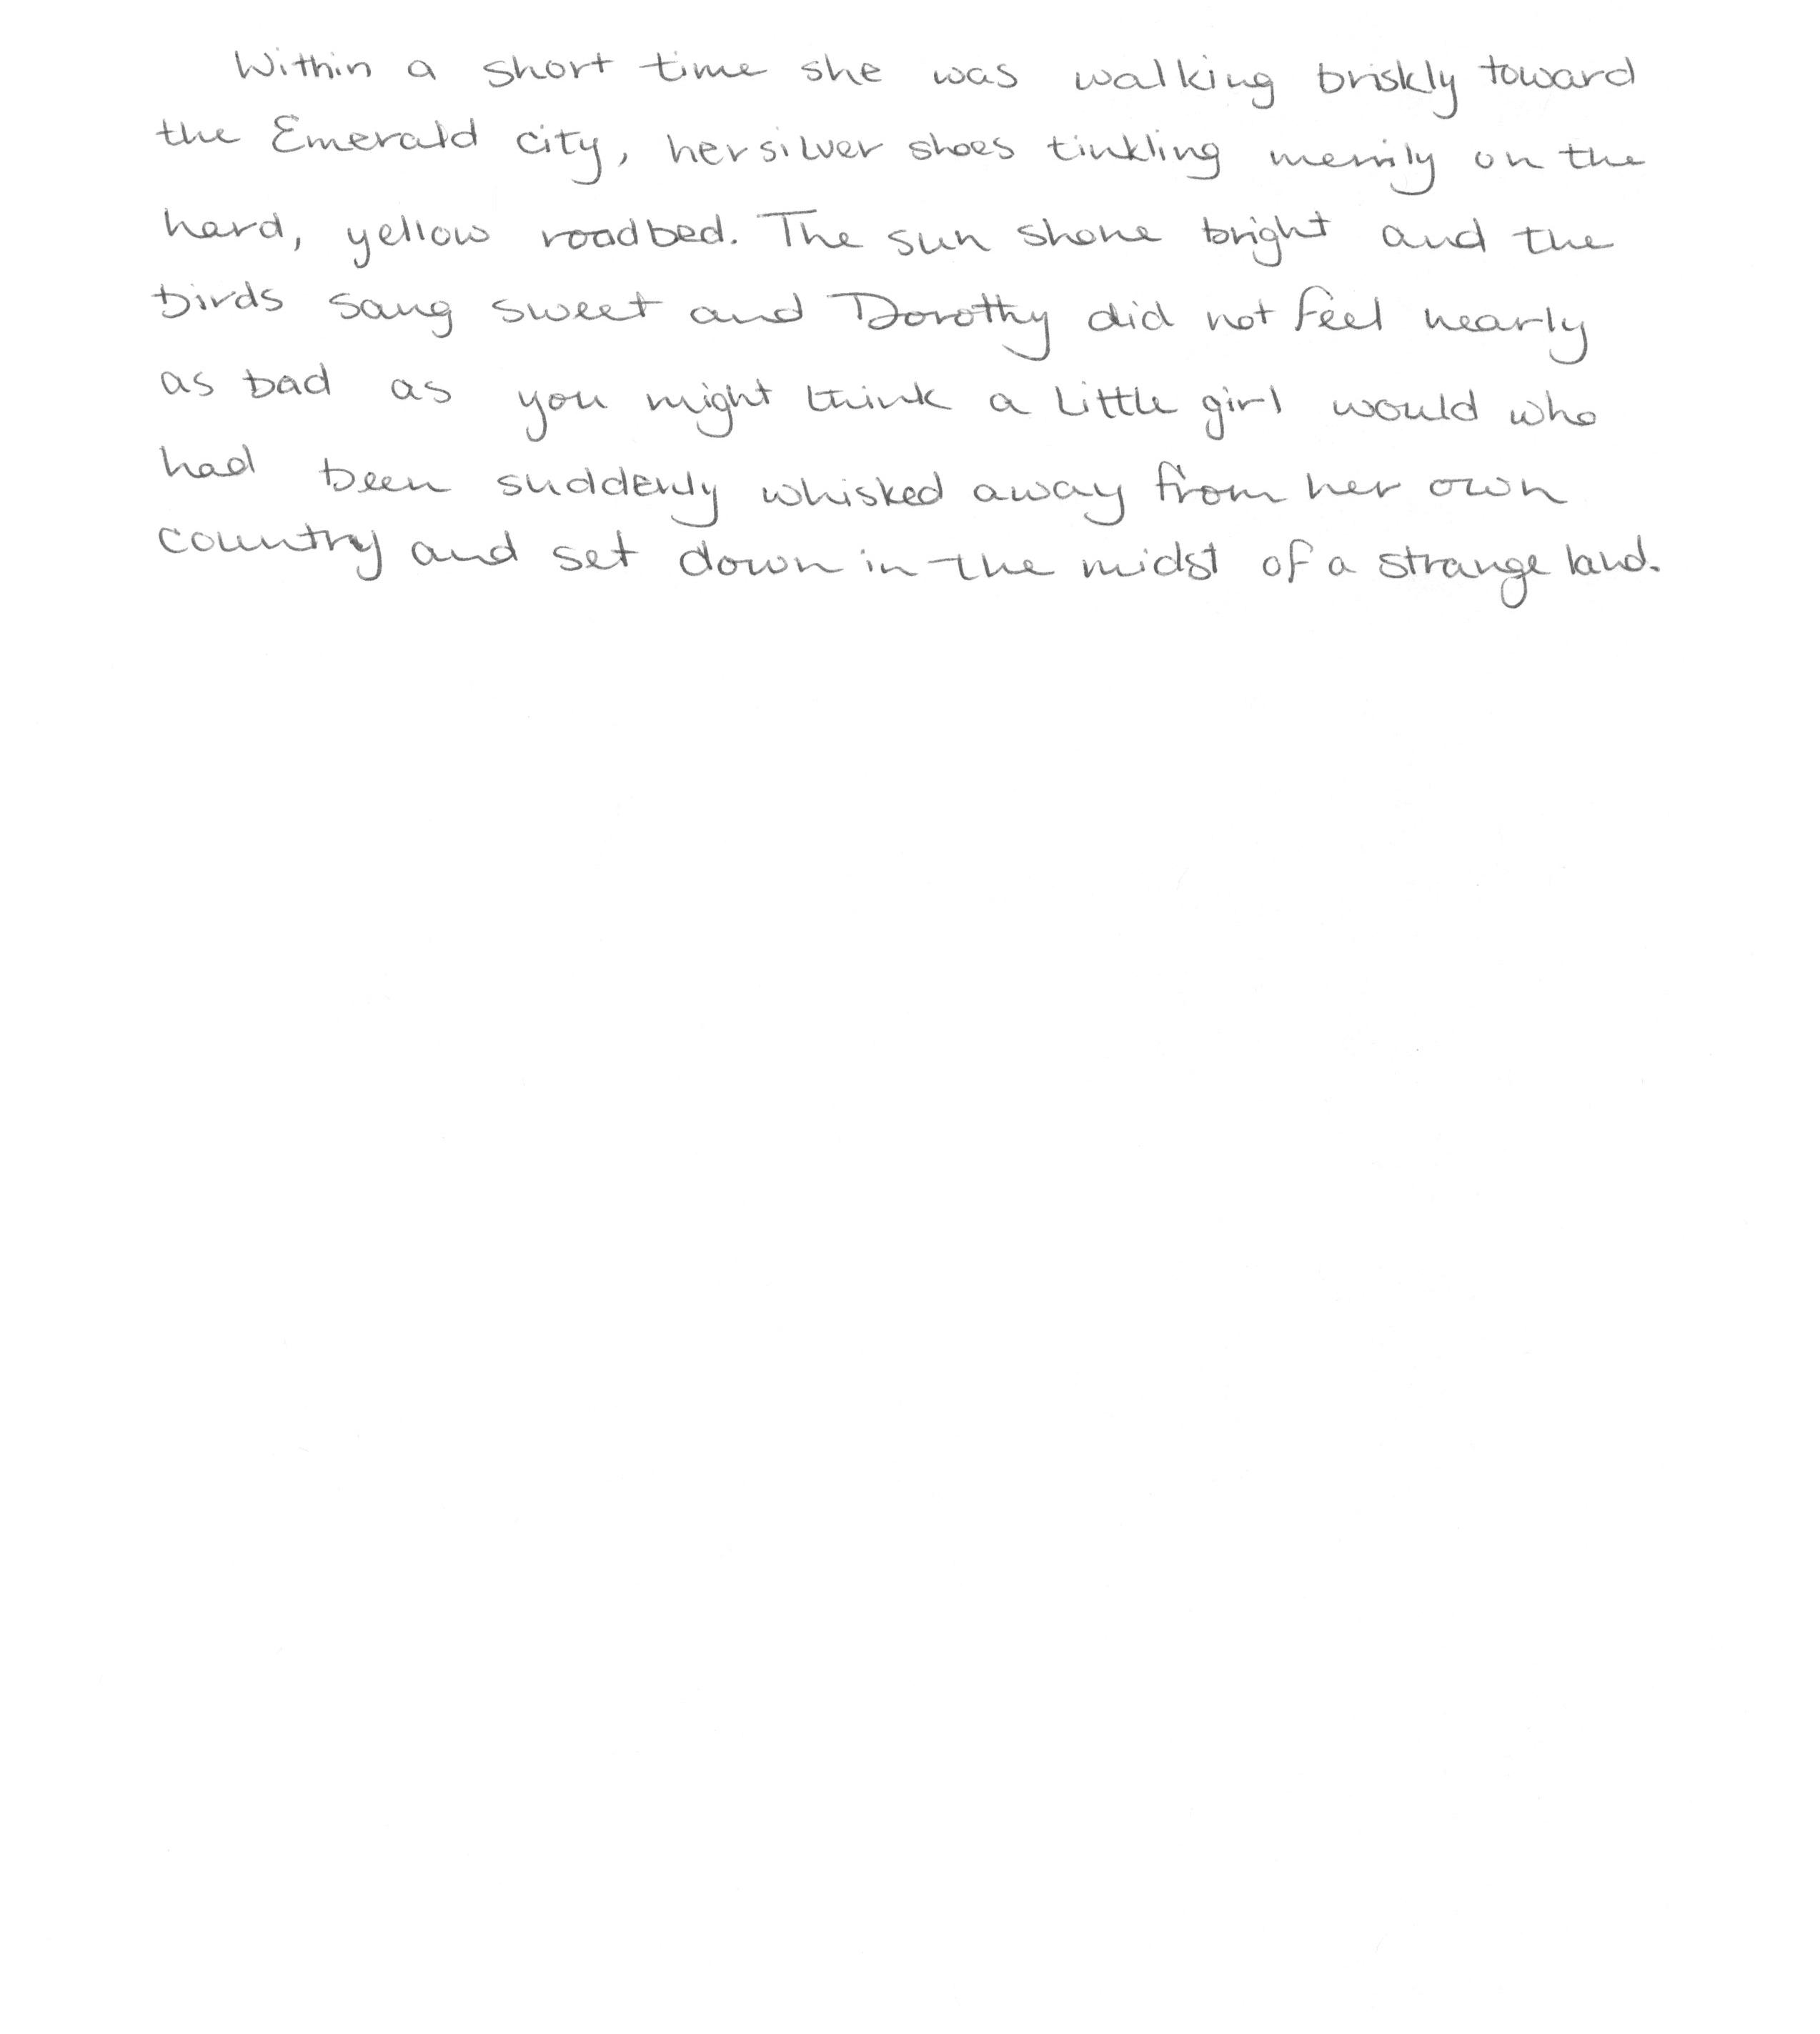 Within a short time she was walking briskly toward
the Emerald city, her silver shoes tinkling merrily on the
hard, yellow roadbed. The sun shone bright and the
birds sang sweet and Dorothy did not feel nearly
as bad as you might think a little girl would who
had been suddenly whisked away from her own
country and set down in the midst of a strange land.